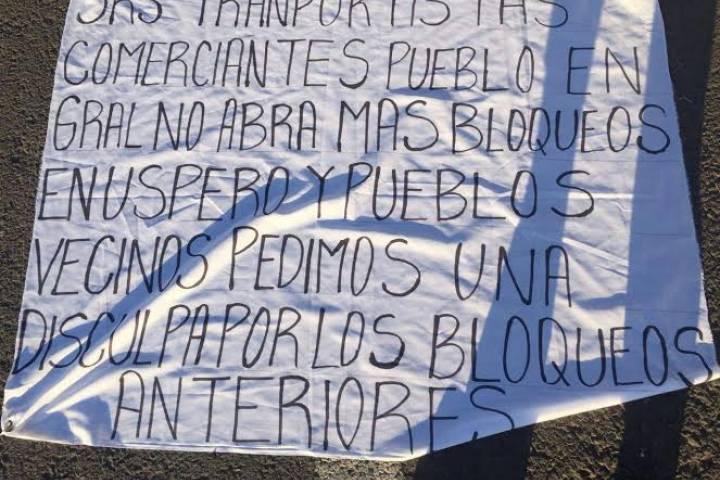 SRS TRANPORTISTAS
COMERCIANTES PUEBLO EN
GRAL NO ABRA MAS BLOQUEOS
EN USPERO Y PUEBLOS
VECINOS PEDIMOS UNA
DISCULPA POR LOS BLOQUEOS
ANTERIORES